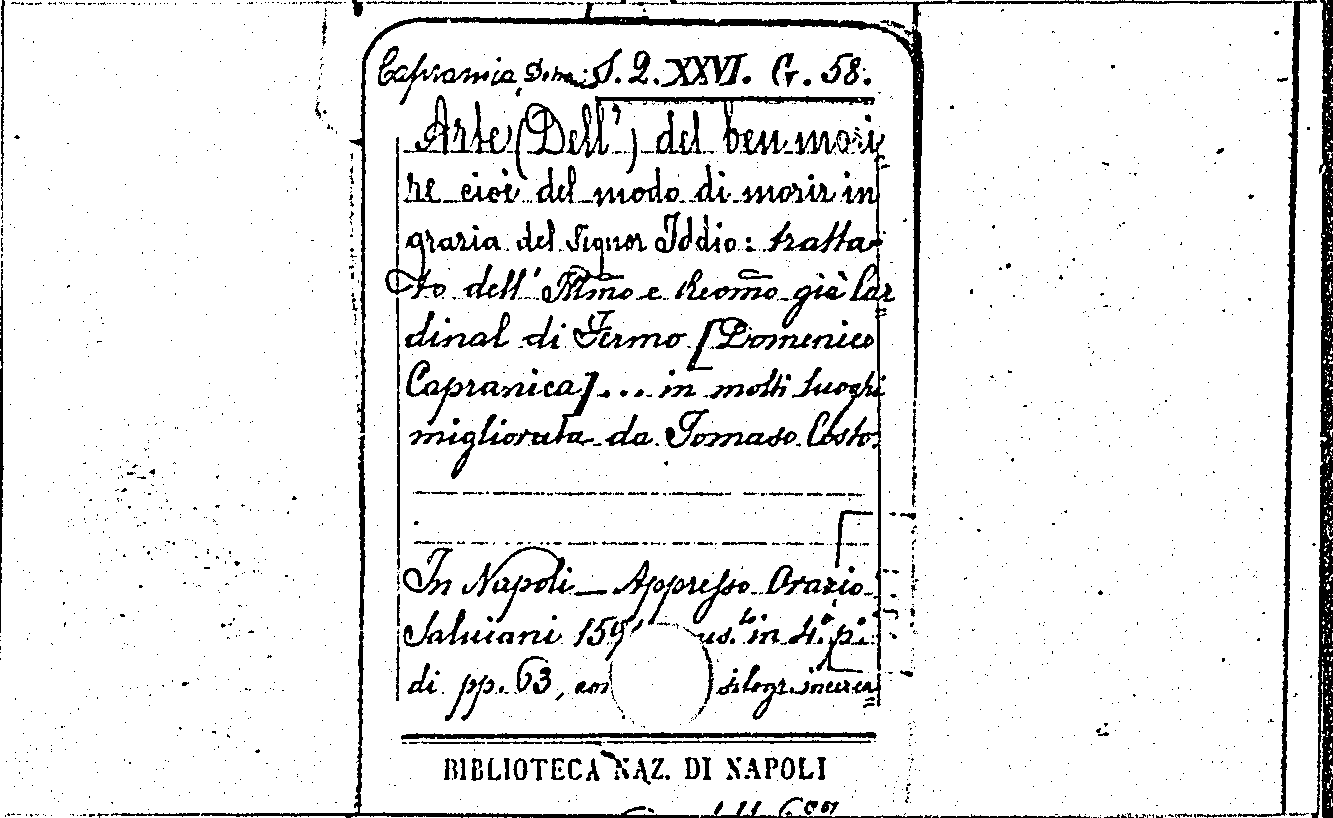 Capranica, Dom: S. Q. XXVI. G. 58.
Arte (Dell') del ben mori
re cioè del modo di morir in
grazia del Signor Iddio: tratta-
to dell' Illmo e Reomo già Car
dinal di Fermo [Domenico
Capranica] ... in molti luoghi
migliorata da Tomaso Costo.
In Napoli - Appresso Orazio
Salviani 159 us. in 4.° p.°
di pp. 63, con silogr. incia
BIBLIOTECA NAZ. DI NAPOLI